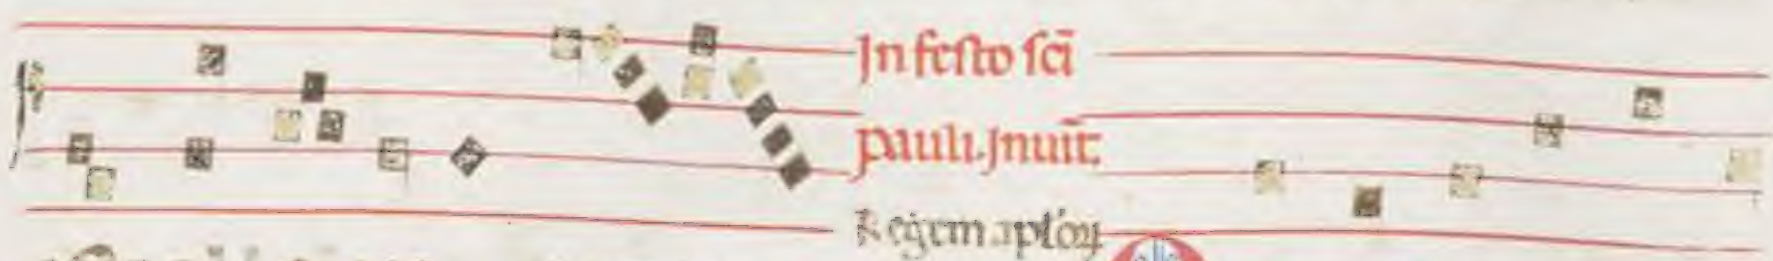 In festo scī
pauli. Inuit̄.
Regem apl'oꝝ